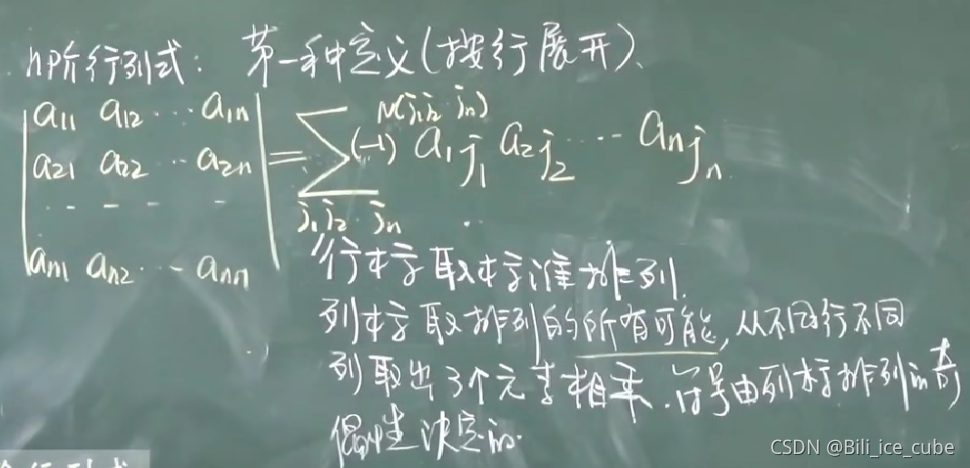 n阶行列式：第一种定义(按行展开)、
a11 a12 ··· a1n
a21 a22 ·· a2n
- - - -
an1 an2 ·· - ann
= ∑ (-1) N(j1j2 jn) a1j1 a2j2 ··· anjn
j1j2 jn
行标取标准排列.
列标取排列的所有可能, 从不同行不同
列取出3个元素相乘.符号由列标排列的奇
偶性决定的.
CSDN @Bili_ice_cube